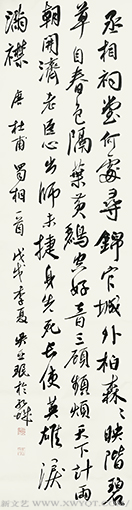 丞相祠堂何處尋錦官城外柏森〻映階碧
草自春色隔葉黃鸝空好音三顧頻煩天下計兩
朝開濟老臣心出師未捷身先死長使英雄淚
滿襟 唐 杜甫 蜀相一首 戊戌季夏
新文艺